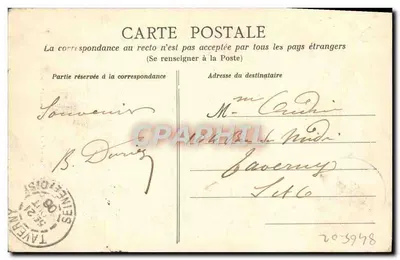 CARTE POSTALE
La correspondance au recto n'est pas acceptée par tous les pays étrangers
(Se renseigner à la Poste)
Partie réservée à la correspondance
Adresse du destinataire
Souvenir
B.
Mme
du Midi
Taverny
S et O
CARTE
TAVERNY
SEINE-ET-OISE
20-5948